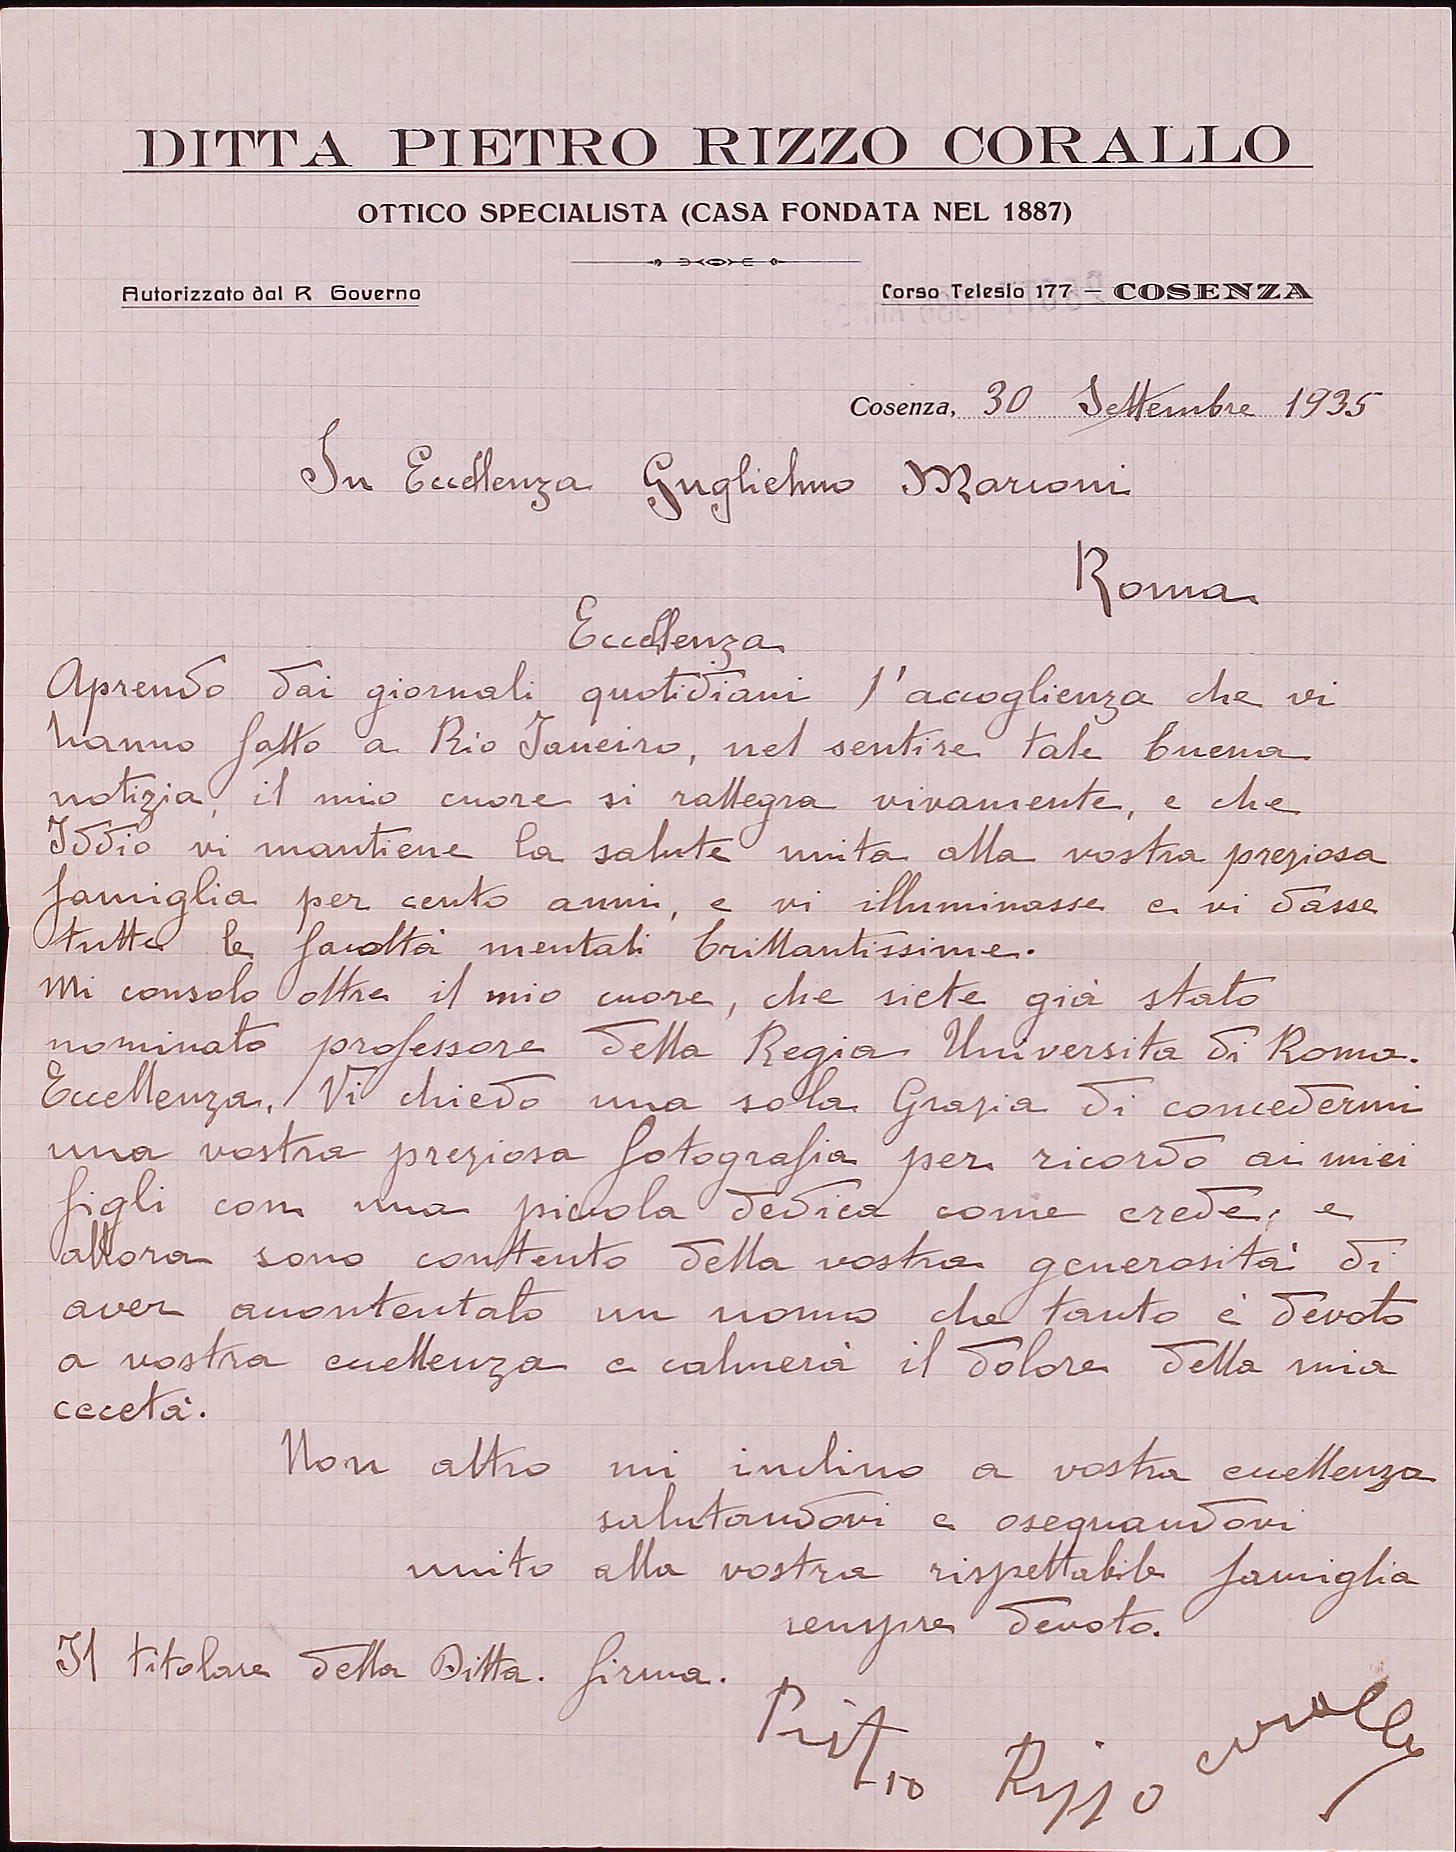 DITTA PIETRO RIZZO CORALLO
OTTICO SPECIALISTA (CASA FONDATA NEL 1887)
Autorizzato dal R Governo
Corso Telesio 177 — COSENZA
Cosenza, 30 Settembre 1935
Su Eccellenza Guglielmo Marconi
Roma
Eccellenza
Aprendo dai giornali quotidiani l'accoglienza che vi
hanno fatto a Rio Janeiro, nel sentire tale buena
notizia, il mio cuore si rallegra vivamente, e che
Iddio vi mantiene la salute unita alla vostra preziosa
famiglia per cento anni, e vi illuminasse e vi dasse
tutte le facoltà mentali brillantissime.
Mi consolo oltre il mio cuore, che siete già stato
nominato professore della Regia Universita di Roma.
Eccellenza, Vi chiedo una sola Grazia di concedermi
una vostra preziosa fotografia per ricordo ai miei
figli con una piccola dedica come crede, e
allora sono contento della vostra generosità di
aver accontentato un nonno che tanto è devoto
a vostra eccellenza e calmerà il dolore della mia
cecetà.
Non altro mi inclino a vostra eccellenza
salutandovi e osequandovi
unito alla vostra rispettabile famiglia
sempre devoto.
Il titolare della Ditta. firma.
Pietro Rizzo Corallo